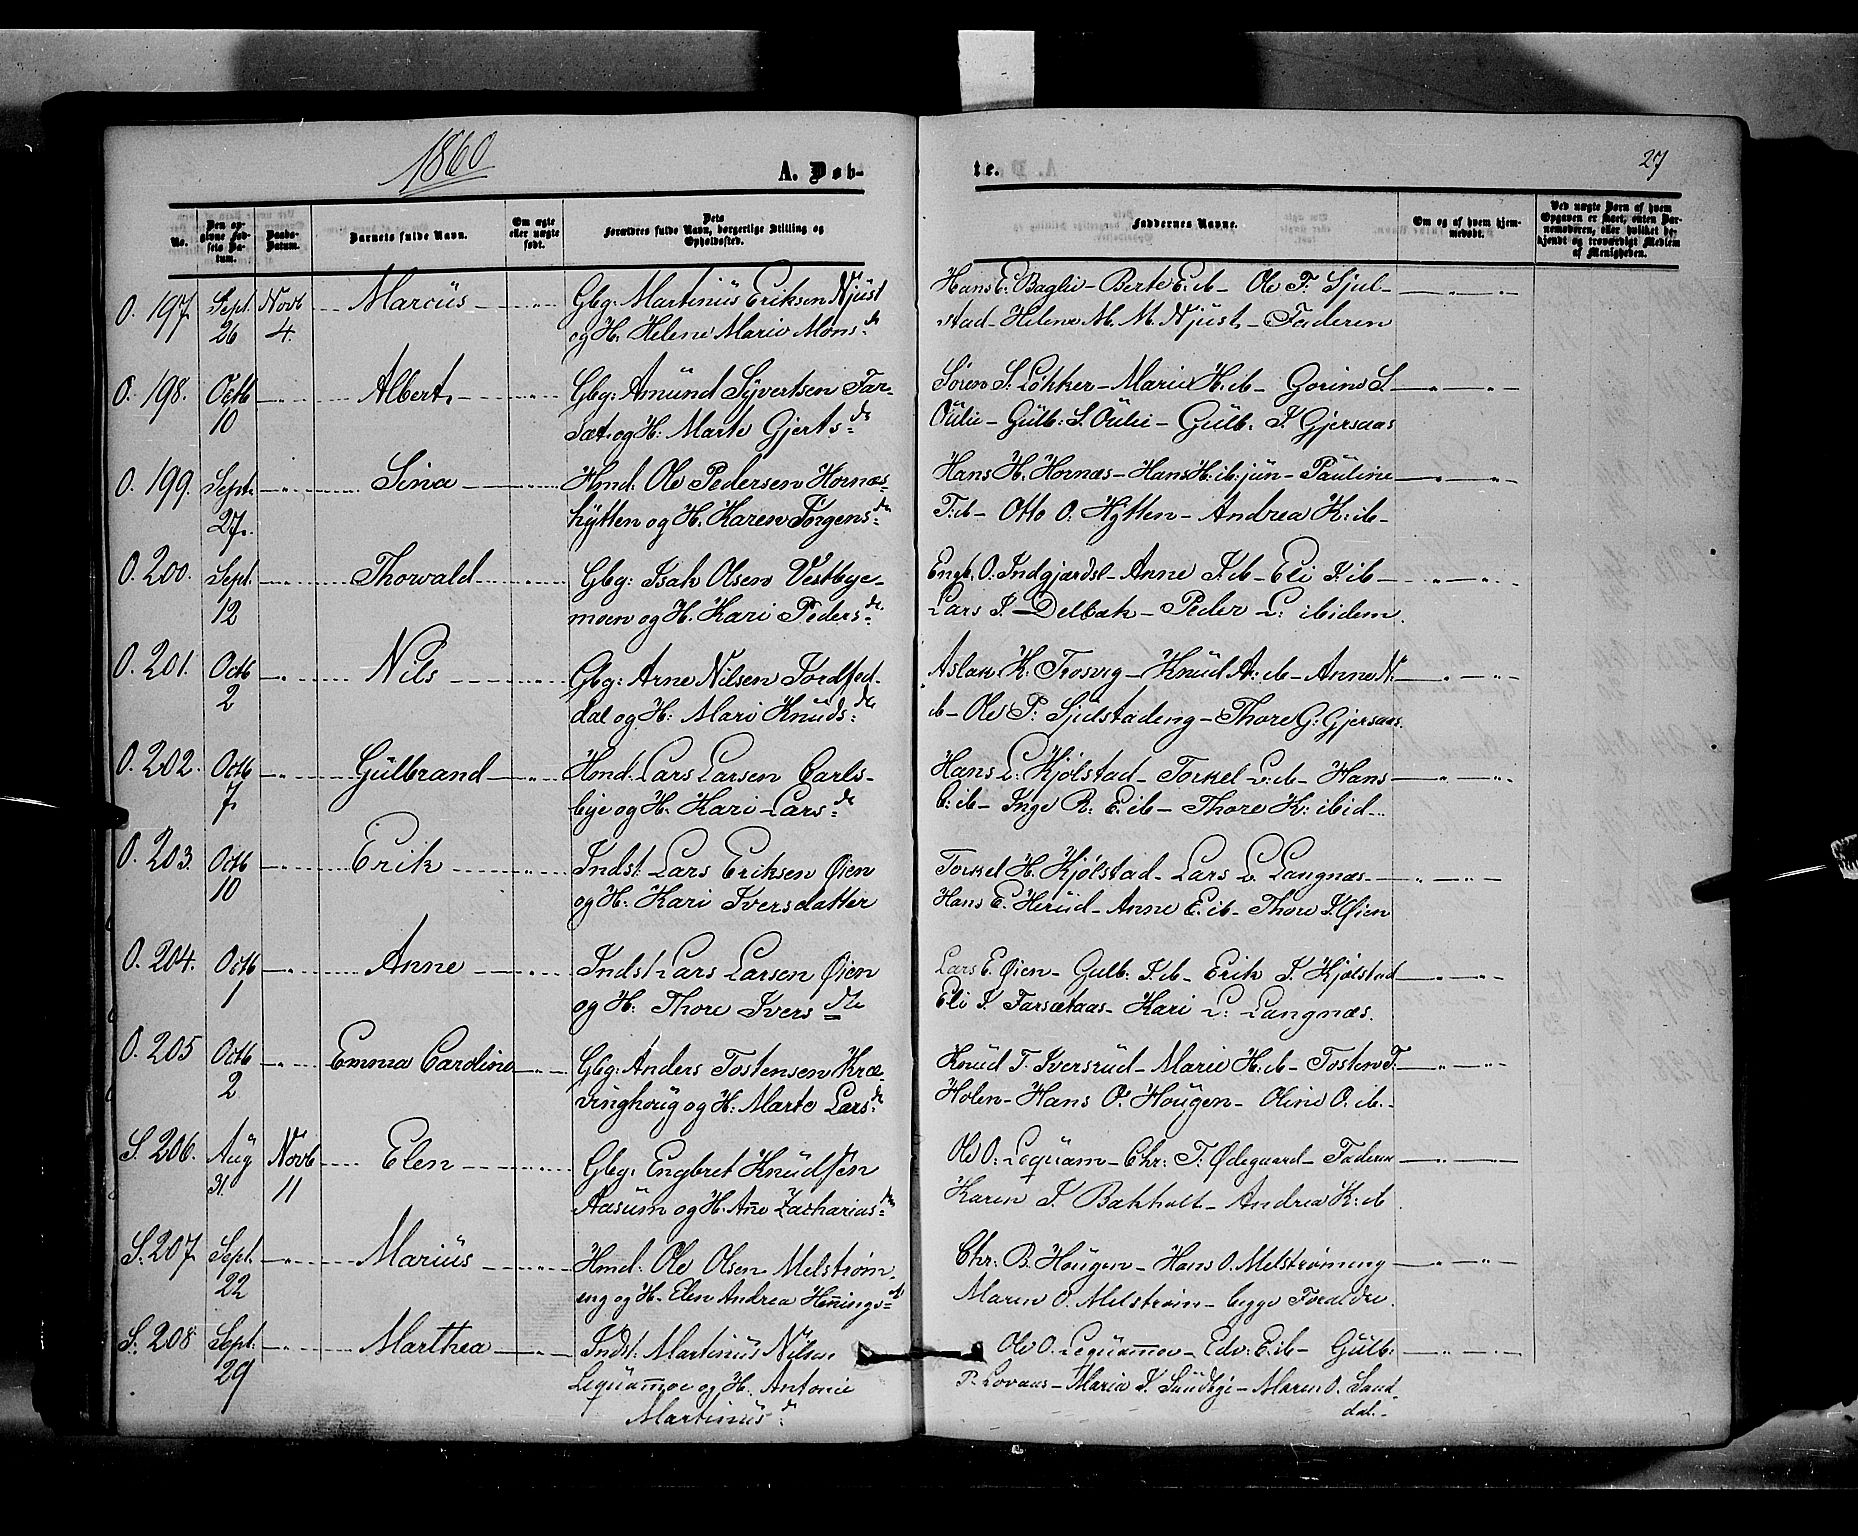 1860
A. Døb-
te.
27
No.
Den opgivne Fødsels Datum.
Daabs-Datum.
Barnets fulde Navn.
Om ægte eller uægte født.
Dets Forældres fulde Navn, borgerlige Stilling og Opholdssted.
Faddernes Navne.
Om og af hvem hjemmedøbt.
Ved uægte Børn af hvem Opgaven er skeet, enten Barnemoderen, eller hvilket bekjendt og troværdigt Medlem af Menigheden.
O. 197. Sept. 26 Novb 4. Marcus Gbg: Martinus Eriksen Njust
og H. Helene Marie Mons dr
Hans E. Baglie - Berte E. ib - Ole T. Sjul-
stad - Helene M. M. Njust - Faderen
O. 198. Octb 10 Albert Gbg: Amund Syvertsen Far-
sæt og H: Marte Gjerts dr
Søren S. Løkker - Marie H. ib - Gorine S
Oulie - Gulb: S. Oulie - Gulb. I. Gjersaas
O. 199. Sept. 27. Sina Hmd. Ole Pedersen Hornæs-
hytten og H. Karen Jørgens dr
Hans H. Hornæs - Hans H. ib. jun - Pauline
T. ib - Otto O. Hytten - Andrea K: ib -
O. 200. Sept. 12 Thorvald Gbg: Isak Olsen Vestbye-
moen og H. Kari Peders dr
Engb. O. Indgjærdsl - Anne I. ib - Eli I. ib -
Lars I. Delbæk - Peder L: ibidem.
O. 201. Octb 2 Nils Gbg: Arne Nilsen Tordsed-
dal og H: Mari Knuds dr
Aslak K. Trosvig - Knud A: ib - Anne N.
ib - Ole P. Sjulstadeng - Thore G: Gjersaas
O. 202. Octb 7. Gulbrand Hmd. Lars Larsen Carls-
bye og H. Kari Lars dr
Hans L: Kjølstad - Torkel L. ib - Hans
C. ib - Inge R. E. ib - Thore K: ibid -
O. 203. Octb 10 Erik Indst: Lars Eriksen Øien
og H. Kari Iversdatter
Torkel H. Kjølstad - Lars L. Langnæs -
Hans E. Herud - Anne E. ib - Thore I. Øien
O. 204. Octb 1 Anne Indst. Lars Larsen Øien
og H. Thore Ivers dtr
Lars E. Øien - Gulb: I. ib - Erik I. Kjølstad
Eli I. Farsætaas - Kari L: Langnæs.
O. 205 Octb 2 Emma Caroline Gbg: Anders Tostensen Kræ-
vinghoug og H: Marte Lars dr
Knud T. Iversrud - Marie H. ib - Tosten T.
Holen - Hans O. Hougen - Oline O. ib. -
S. 206. Aug 31. Novb 11 Elen Gbg: Engbret Knudsen
Aasum og H. Ane Zacharias dr
Ole O. Lequam - Chr: T. Ødegaard - Faderen
Karen I. Bakholt - Andrea K: ib
S. 207. Sept. 22 Marius Hmd. Ole Olsen Melstrøm-
eng og H. Elen Andrea Hennings d
Chr: B. Hougen - Hans O. Melstrømeng
Maren O. Melstrøm - begge Forældre.
S. 208 Sept. 29 Marthea Indst: Martinus Nilsen
Lequamoe og H. Antonie
Martinus d.
Ole O. Lequamoe - Edv. E. ib - Gulb:
P. Lovaas - Maria I. Sundbye - Maren O. Sand-
dal. -